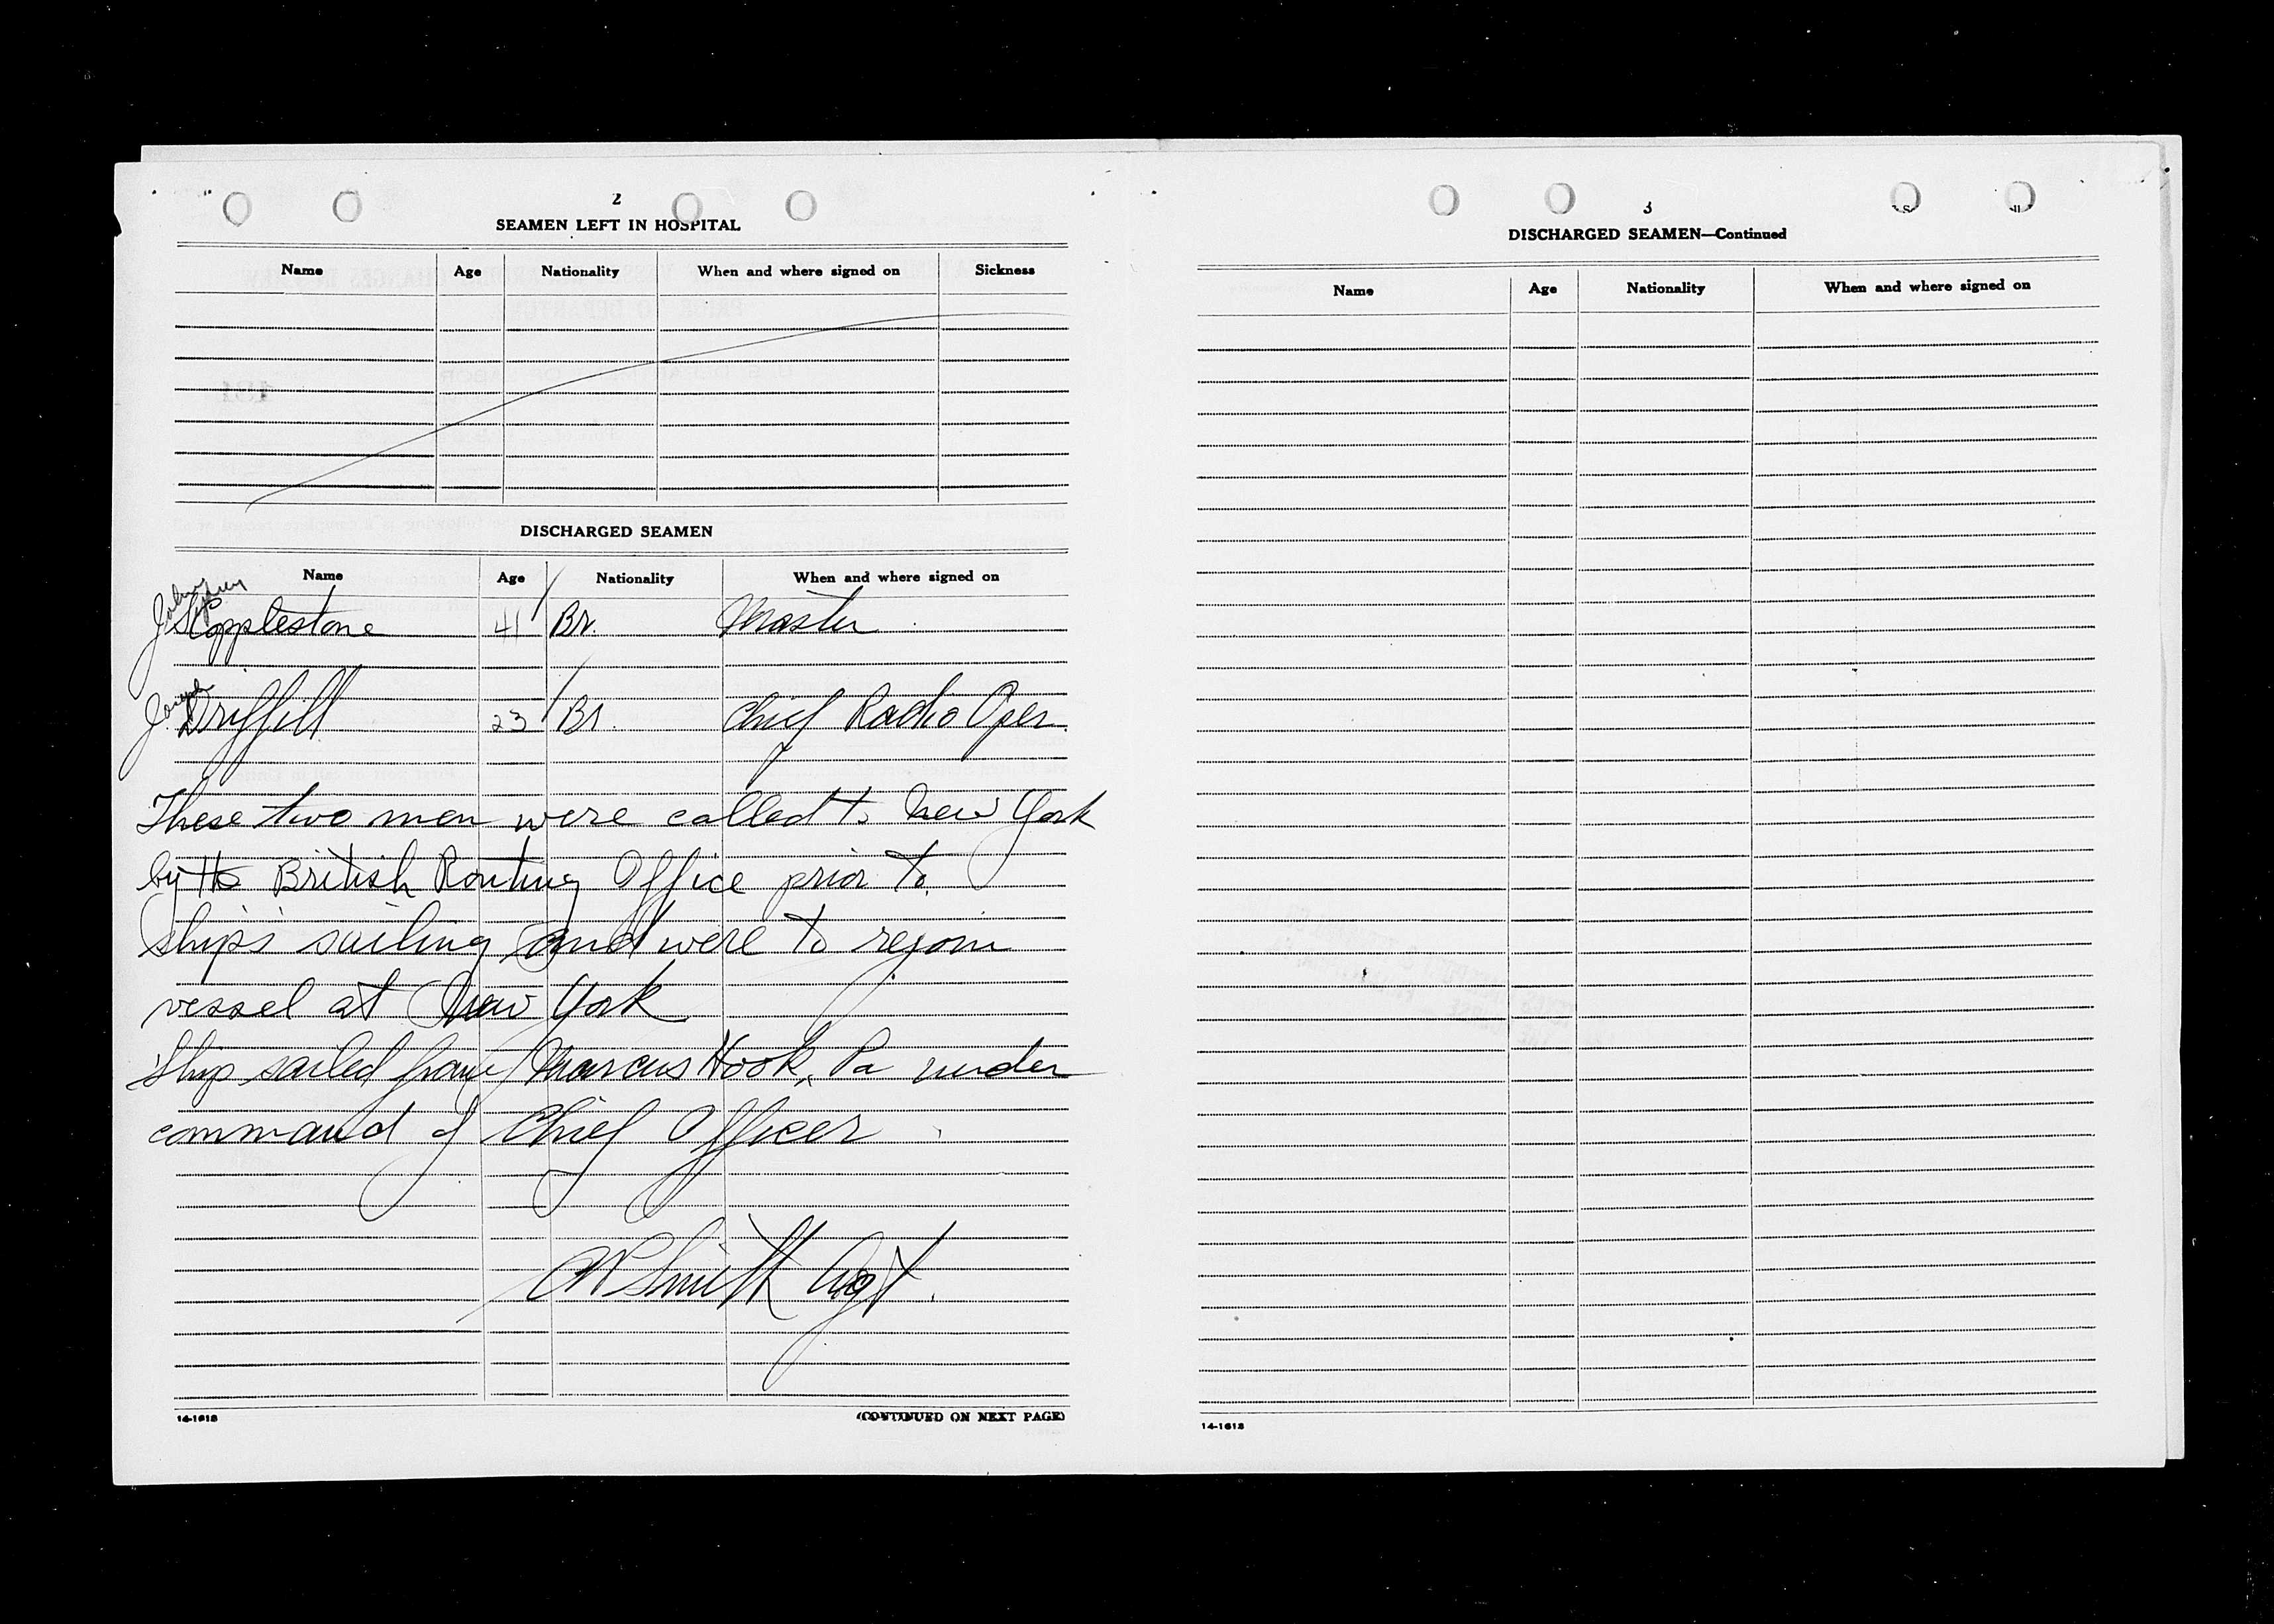 2
SEAMEN LEFT IN HOSPITAL
Name Age Nationality When and where signed on Sickness
DISCHARGED SEAMEN
Name Age Nationality When and where signed on
John Sydney
Copplestone 41 Br. Master
Joseph
Driffill 23 Br. Chief Radio Oper.
These two men were called to New York
by the British Routing Office prior to
ship's sailing and were to rejoin
vessel at New York
Ship sailed from Marcus Hook, Pa under
command of Chief Officer
Smith Agt.
14-1613
(CONTINUED ON NEXT PAGE)
3
DISCHARGED SEAMEN—Continued
Name Age Nationality When and where signed on
14-1613